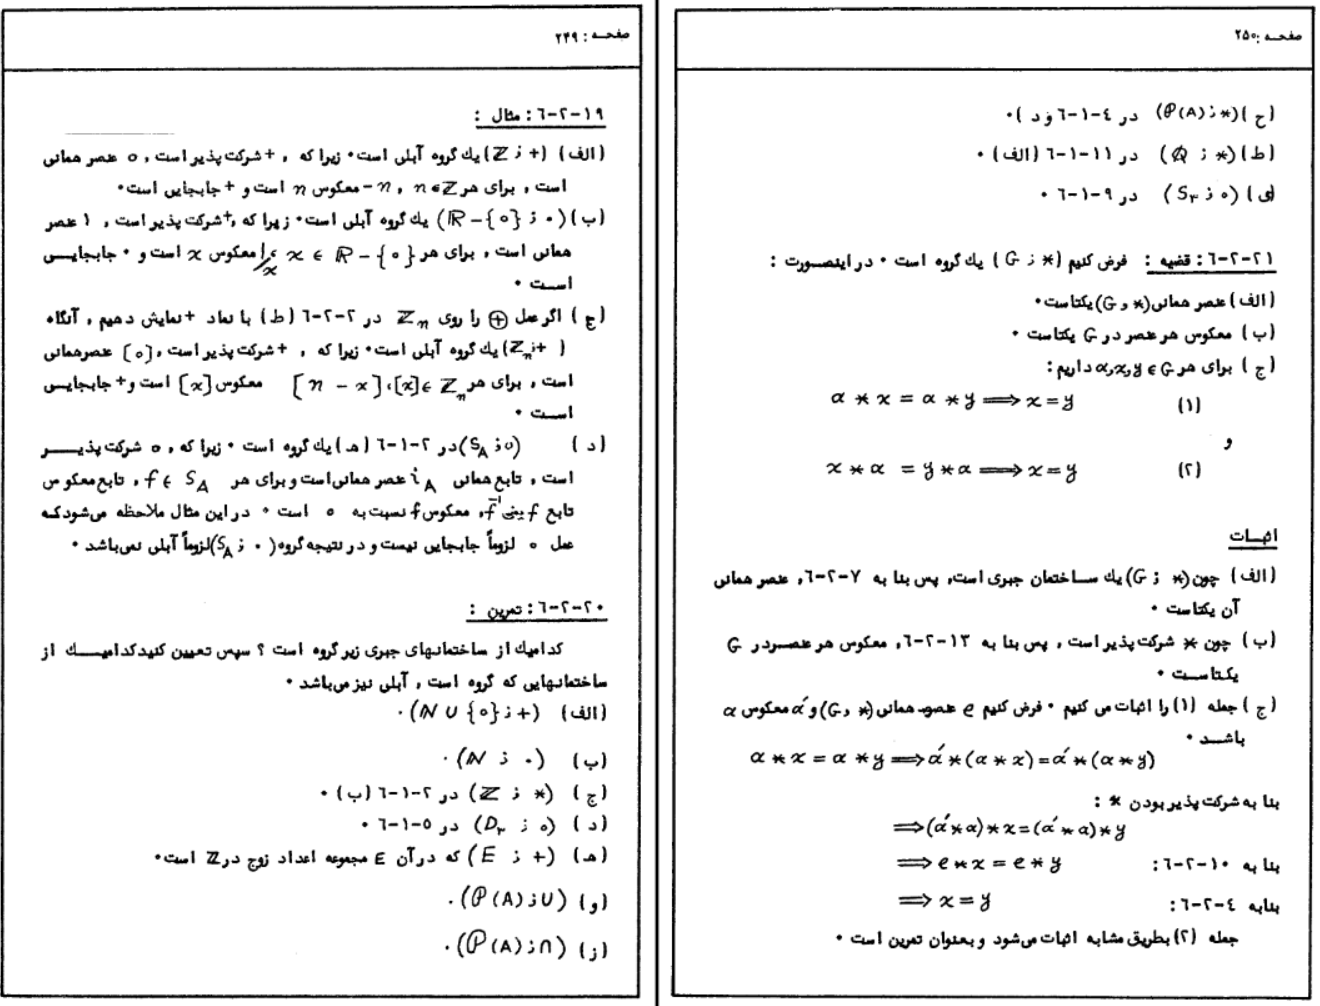 صفحه : ۲۴۹
۶-۲-۱۹ : مثال :
(الف) (Z ; +) یك گروه آبلی است۰ زیرا که ، + شرکت پذیر است ، ٥ عنصر همانی
است ، برای هر n ∈ Z ، n- معکوس n است و + جابجایی است۰
(ب) (R - {٥} ; ۰) یك گروه آبلی است۰ زیرا که ، شرکت پذیر است ، ۱ عنصر
همانی است ، برای هر x ∈ R - {٥} ، ۱/x معکوس x است و ۰ جابجایـــی
اســت ۰
(ج) اگر عمل ⊕ را روی Zₙ در ۶-۲-۲ (ط) با نماد + نمایش دهیم ، آنگاه
(Zₙ ; +) یك گروه آبلی است۰ زیرا که ، + شرکت پذیر است ، [٥] عنصر همانی
است ، برای هر [x] ∈ Zₙ ، [n - x] معکوس [x] است و + جابجایـــی
اســت ۰
(د) (S_A ; ٥) در ۶-۱-۲ (هـ) یك گروه است ۰ زیرا که ، ٥ شرکت پذیـــر
است ، تابع همانی i_A عنصر همانی است و برای هر f ∈ S_A ، تابع معکوس
تابع f یعنی f⁻¹، معکوس f نسبت به ٥ است ۰ در این مثال ملاحظه می‌شود کـه
عمل ٥ لزوماً جابجایی نیست و در نتیجه گروه (S_A ; ۰) لزوماً آبلی نمی‌باشد ۰
۶-۲-۲۰ : تمرین :
کدامیك از ساختمانهای جبری زیر گروه است ؟ سپس تعیین کنید کدامیـــك از
ساختمانهایی که گروه است ، آبلی نیز می‌باشد ۰
(الف) (N ∪ {٥} ; +) ۰
(ب) (N ; ۰) ۰
(ج) (Z ; *) در ۶-۱-۲ (ب) ۰
(د) (D₃ ; ٥) در ۶-۱-۵ ۰
(هـ) (E ; +) که در آن E مجموعه اعداد زوج در Z است۰
(و) (P(A) ; ∪) ۰
(ز) (P(A) ; ∩) ۰
صفحه : ۲۵۰
(ح) (P(A) ; *) در ۶-۱-۴ (و د) ۰
(ط) (Q ; *) در ۶-۱-۱۱ (الف) ۰
(ی) (S₃ ; ٥) در ۶-۱-۹ ۰
۶-۲-۲۱ : قضیه : فرض کنیم (G ; *) یك گروه است ۰ در اینصــورت :
(الف) عنصر همانی (G و *) یکتاست۰
(ب) معکوس هر عنصر در G یکتاست ۰
(ج) برای هر a,x,y ∈ G داریم :
a * x = a * y ⟹ x = y (۱)
و
x * a = y * a ⟹ x = y (۲)
اثبــات
(الف) چون (G ; *) یك ســاختمان جبری است، پس بنا به ۶-۲-۷، عنصر همانی
آن یکتاست ۰
(ب) چون * شرکت پذیر است ، پس بنا به ۶-۲-۱۳، معکوس هر عنصــر در G
یکتاســت ۰
(ج) جمله (۱) را اثبات می کنیم ۰ فرض کنیم e عنصر همانی (G و *) و a′ معکوس a
باشــد ۰
a * x = a * y ⟹ a′ * (a * x) = a′ * (a * y)
بنا به شرکت پذیر بودن * :
⟹ (a′ * a) * x = (a′ * a) * y
بنا به ۶-۲-۱۰ : ⟹ e * x = e * y
بنابه ۶-۲-۴ : ⟹ x = y
جمله (۲) بطریق مشابه اثبات می‌شود و بعنوان تمرین است ۰